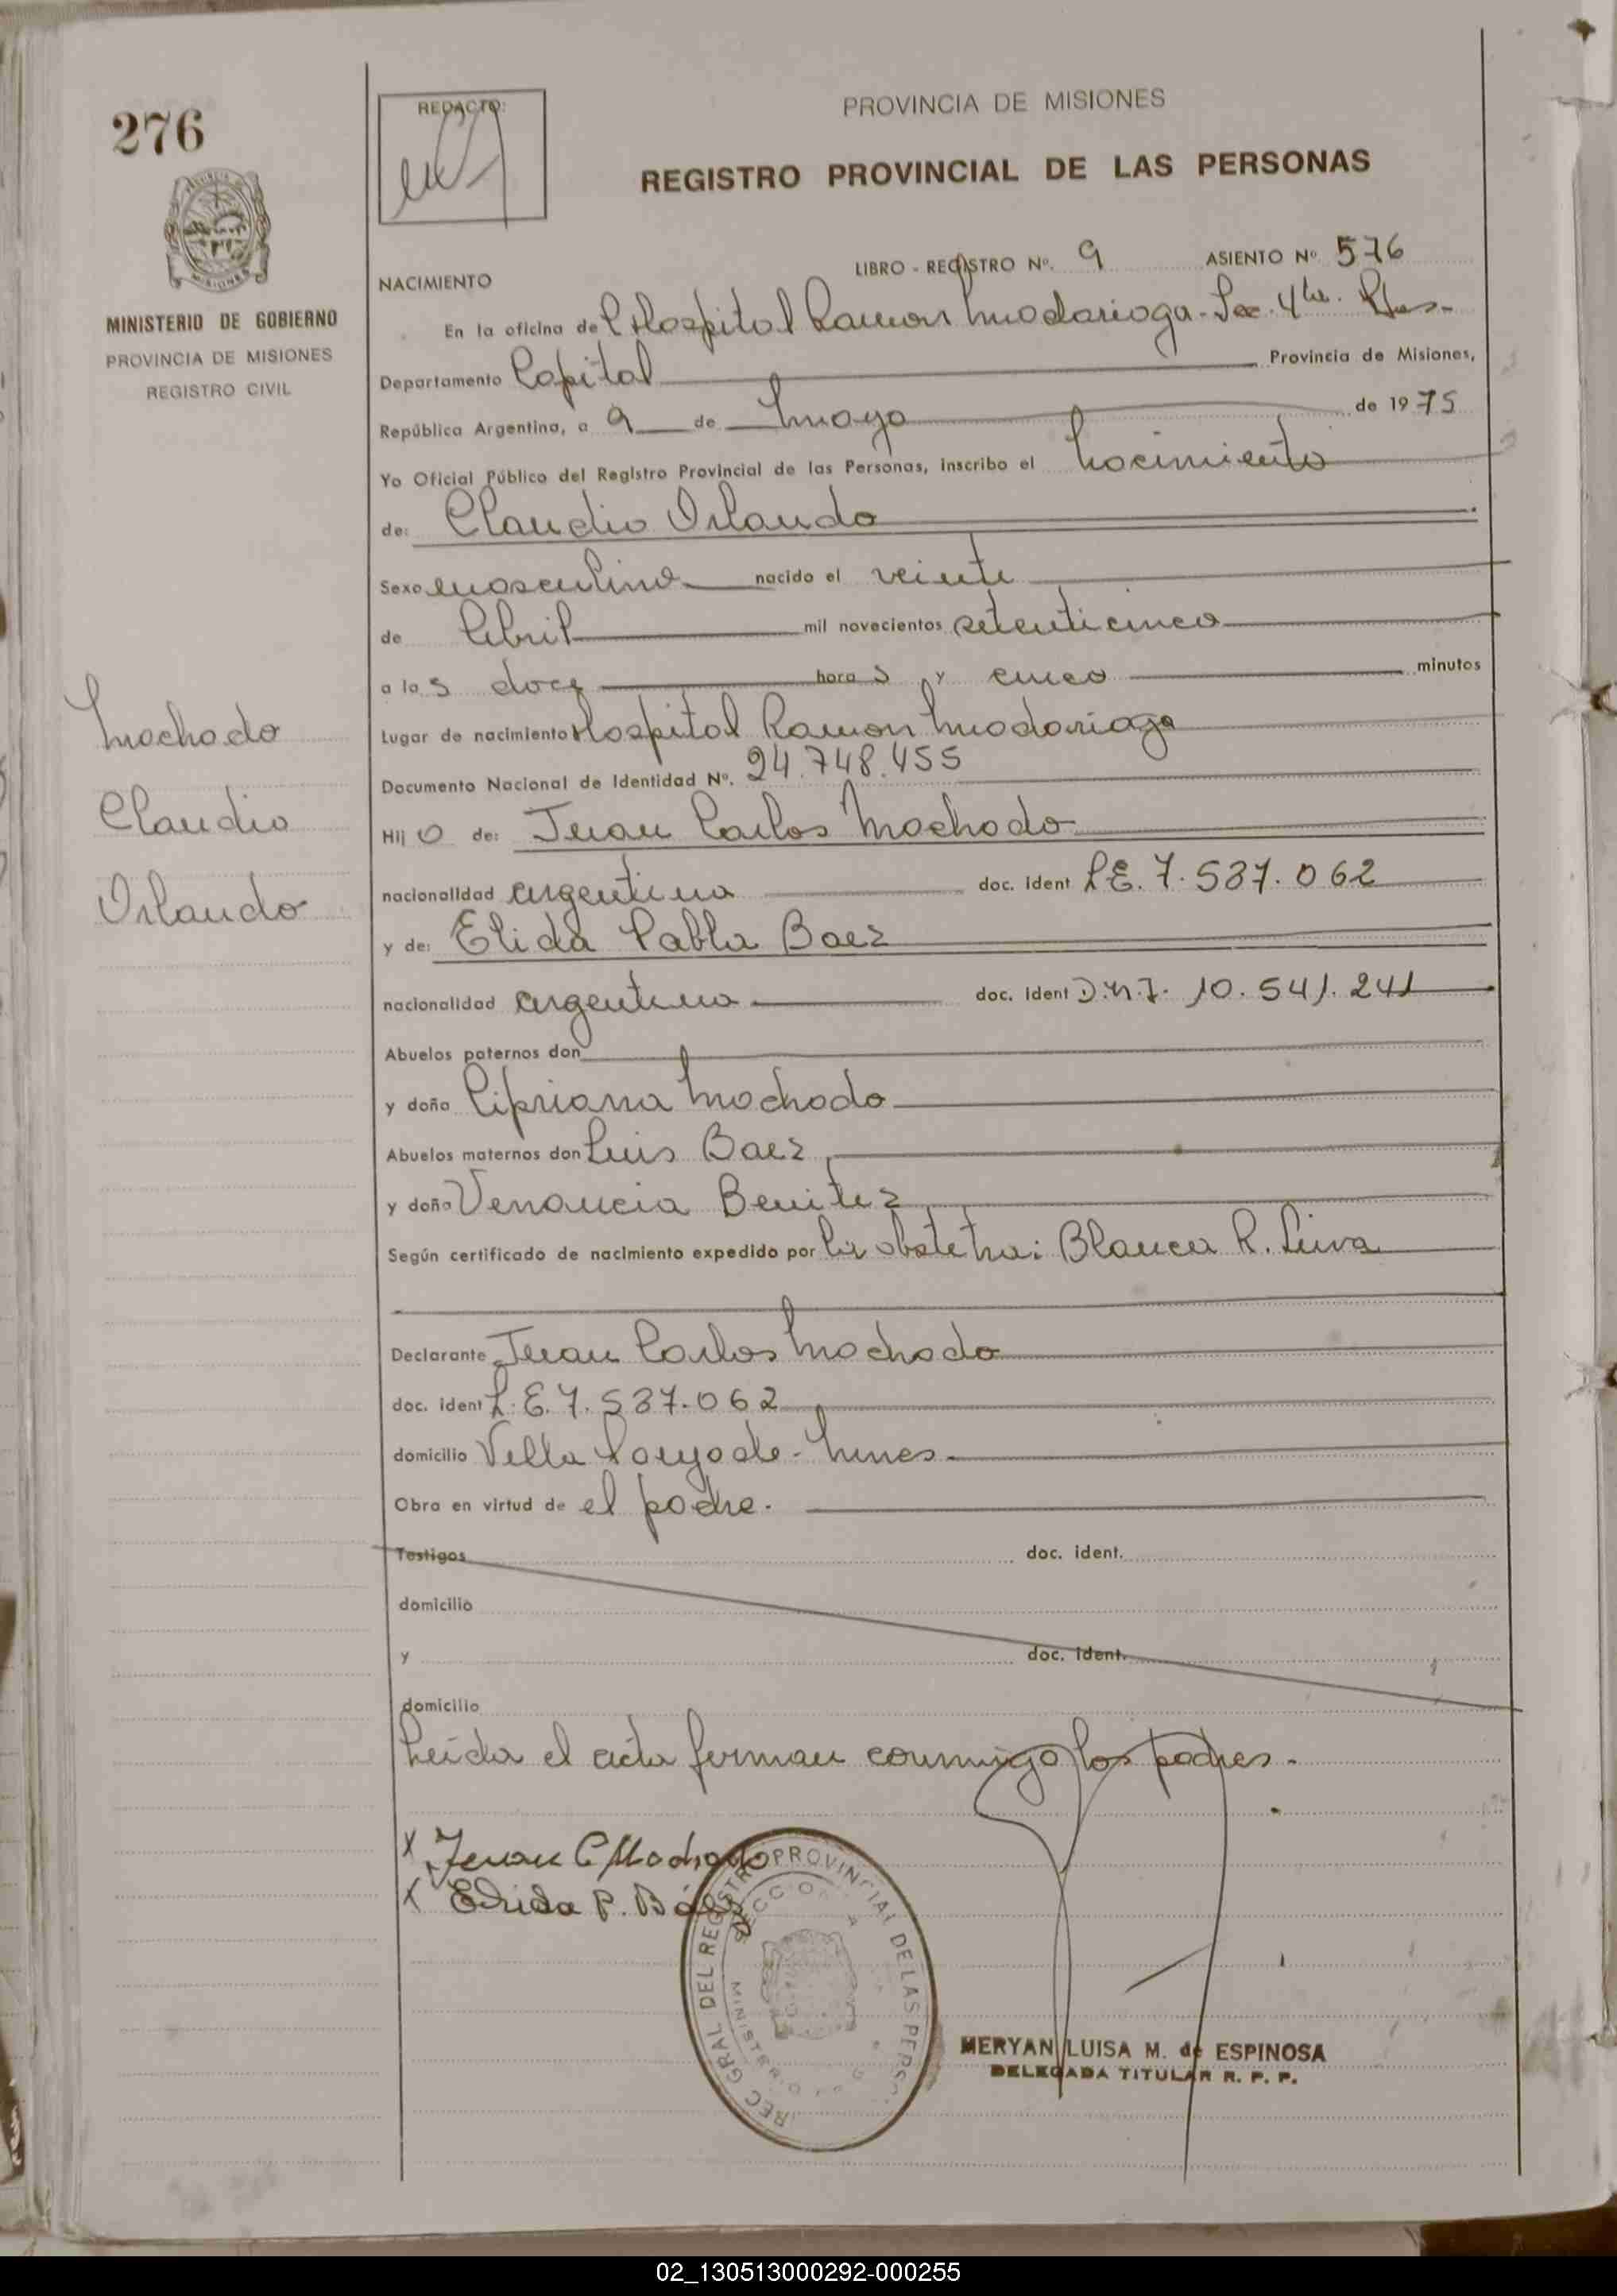 276
REDACTO:
PROVINCIA DE MISIONES
REGISTRO PROVINCIAL DE LAS PERSONAS
MINISTERIO DE GOBIERNO
PROVINCIA DE MISIONES
REGISTRO CIVIL
NACIMIENTO
LIBRO - REGISTRO Nº. 9 ASIENTO Nº 576
En la oficina del Hospital Ramon Madariaga - Sec. 4ta.
Departamento Capital Provincia de Misiones,
República Argentina, a 9 de mayo de 1975
Yo Oficial Público del Registro Provincial de las Personas, inscribo el nacimiento
de: Claudio Orlando
Sexo masculino nacido el veinte
de Abril mil novecientos setenticinco
a las doce horas y cinco minutos
Lugar de nacimiento Hospital Ramon Madariaga
Documento Nacional de Identidad Nº. 24.748.455
Machado
Claudio
Orlando
Hijo de: Juan Carlos Machado
nacionalidad argentina doc. ident L.E. 7.537.062
y de: Elida Pabla Baez
nacionalidad argentina doc. ident D.N.I. 10.541.241
Abuelos paternos don
y doña Cipriana Machado
Abuelos maternos don Luis Baez
y doña Venancia Benitez
Según certificado de nacimiento expedido por la obstetra: Blanca R. Leiva
Declarante Juan Carlos Machado
doc. ident L.E. 7.537.062
domicilio Villa
Obra en virtud de el padre.
Testigos doc. ident.
domicilio
y doc. ident.
domicilio
Leida el acta firman conmigo los padres.
x Juan C Machado
x Elida P. Báez
DIREC GRAL DEL REGISTRO PROVINCIAL DE LAS PERSO
MERYAN LUISA M. de ESPINOSA
DELEGADA TITULAR R. P. P.
02_130513000292-000255